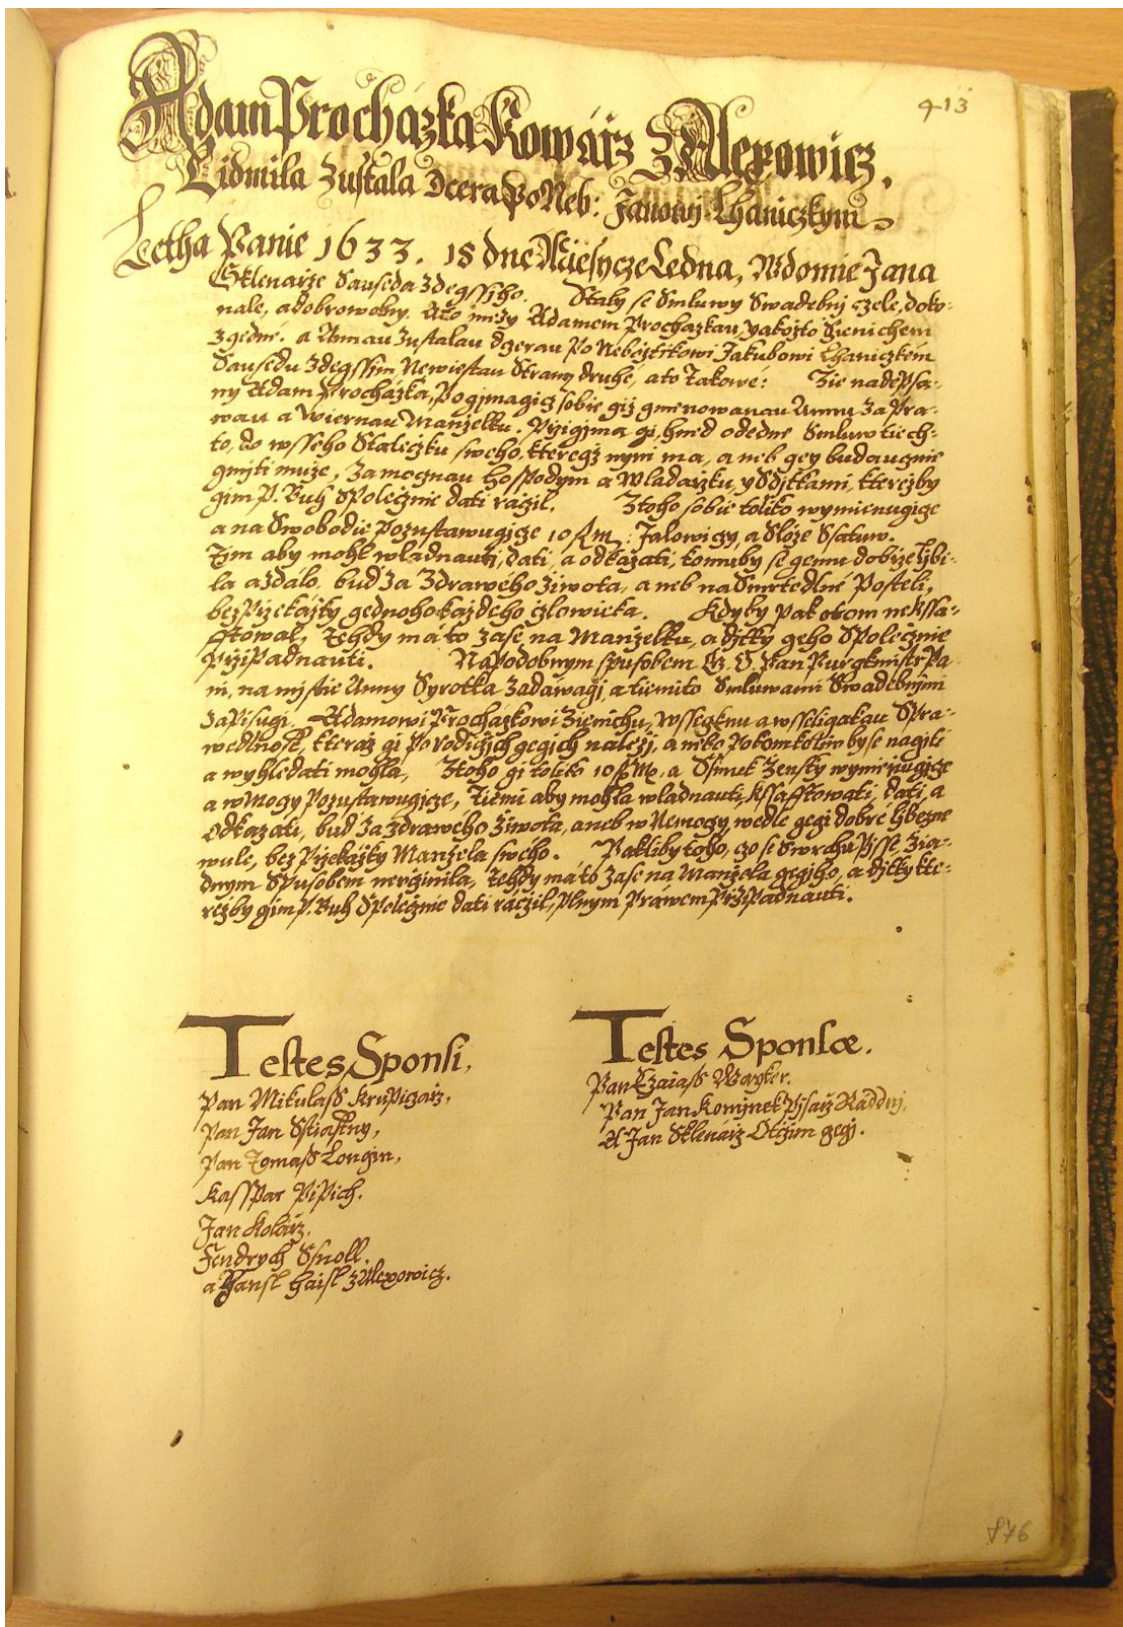 413
Adam Procházka Kowárz Z Alexowicz.
Lidmila Zustala Dcera Po Neb: Janowi Lhaniczkym
Letha Panie 1633. 18 dne Miesycze Ledna, W domie Jana
Sklenarze Sauseda Zdegssiho. Staly se Smluwy Swadebnj czele, doko-
nale, a dobrowolny. A to mezy Adamem Prochazkau, yakožto Zienichem
Zgedné. a Annau Zustalau dgerau Po Nebožtikowi Jakubowi Lhaniczkém
Sausedu Zdegssim Newiestau Strany druhé, a to takowé: Zie nadepsa-
ny Adam Procházka, Pogjmagicz sobie giž gmenowanau Annu Za Pra-
wau a Wiernau Manželku. Przigjma gi, hned ode dne Smluw tiech-
to, do wsseho Stateczku sweho, kteregž nynj ma, a neb gey budaucznie
gmjti muže, Za mocznau hospodyni a Wladarzku, y S djtkami, kterežby
gim P. Buh Spoleczniе dati ráczil. Z toho sobie toliko wymienugicze
a na Swobodie Pozustawugjcze 10 ß m: Jalowiczy, a Slože Ssatuw.
Tjm aby mohl wladnauti, dati, a odkázati, komuby se gemu dobrze ljbi-
la a zdálo. bud Za Zdraweho Žiwota, a neb na Smrtedlné Posteli,
bez Przekážky gednoho každého czlowieka. Kdyby pak o tom nekssa-
fftowal, Tehdy má to Zase na Manželku, a djtky geho Spolecznie
Przipadnauti. Na Podobnym spusobem Pan Purgkmistr Pa-
ni, na mjstie Anny Syrotka Zadáwagj, a tiemito Smluwami Swadebnjmi
Zapisugi Adamowi Procházkowi Zienichu, Wssecknu a wsseligakau Spra-
wedlnost, kteráž gi Po rodiczjch gegich naležj, a nebo Potom kdežkoliw by se nagiti
a wyhledati mohla, Z toho gi toliko 10 ß m, a Ssimek Žensky wymienugjcze
a w Moczy Pozustawugjcze, Tiemi aby mohla wladnauti, kssafftowati, dati, a
odkazati, bud Za Zdraweho Žiwota, aneb w Nemoczy, wedle gegi dobré ljbezne
wule, bez Przekážky Manžela swého. Pakliby toho, czo se Swrchu Pjsse, Žia-
dnym Spusobem neucžinila, Tehdy má to Zase na Manžela gegjho, a djtky kte-
rezby gim P. Buh Spolecznie dati ráczil, Plnym Práwem Przipadnauti.
Testes Sponsi,
Pan Mikulass Krupiczarz,
Pan Jan Sstiastny,
Pan Tomass Longin,
Kasspar Pipich.
Jan Kolárz.
Jendrych Ssnoll.
a Hansl Haisl z Alexowicz.
Testes Sponsæ.
Pan Ezaiass Wayker.
Pan Jan Komjnek Pjsarz Raddnj.
A Jan Sklenárz Otčim gegj.
876